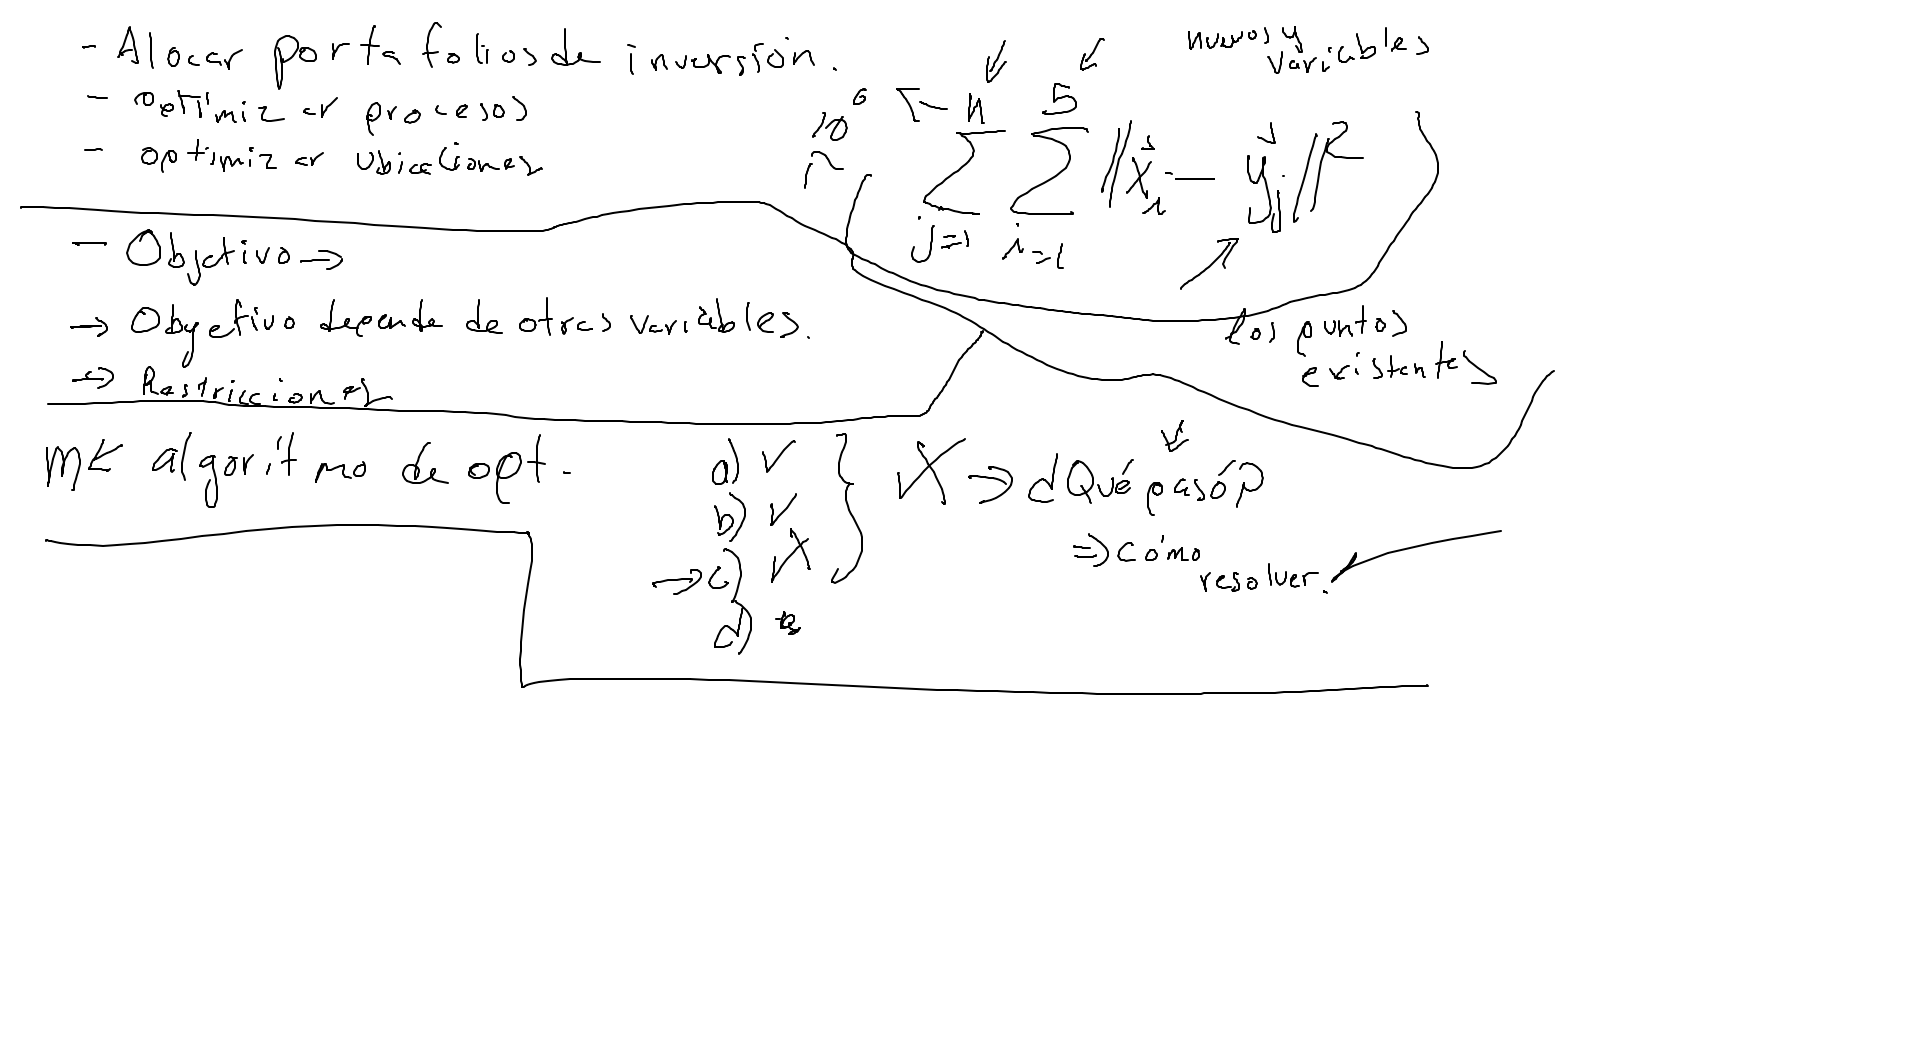 - Alocar portafolios de inversión.
- optimizar procesos
- optimizar ubicaciones
nuevos y
variables
10⁶
n 5
∑ ∑ ||xᵢ - yⱼ||²
j=1 i=1
los puntos
existentes
- Objetivo →
→ Objetivo depende de otras variables.
→ Restricciones
algoritmo de opt.
a) ✓
b) ✓
→ c) ✗
d)
✗ ⇒ ¿Qué pasó?
⇒ cómo
resolver.